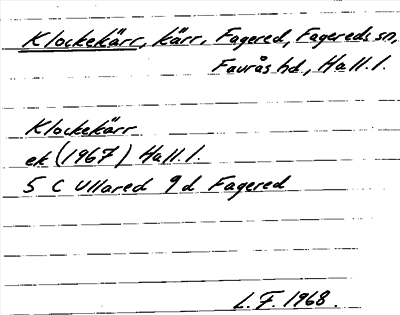 Klockekärr, kärr, Fagered, Fagereds sn,
Faurås hd, Hall.l.
Klockekärr
ek (1967) Hall.l.
5 C Ullared 9d Fagered
L.F. 1968.